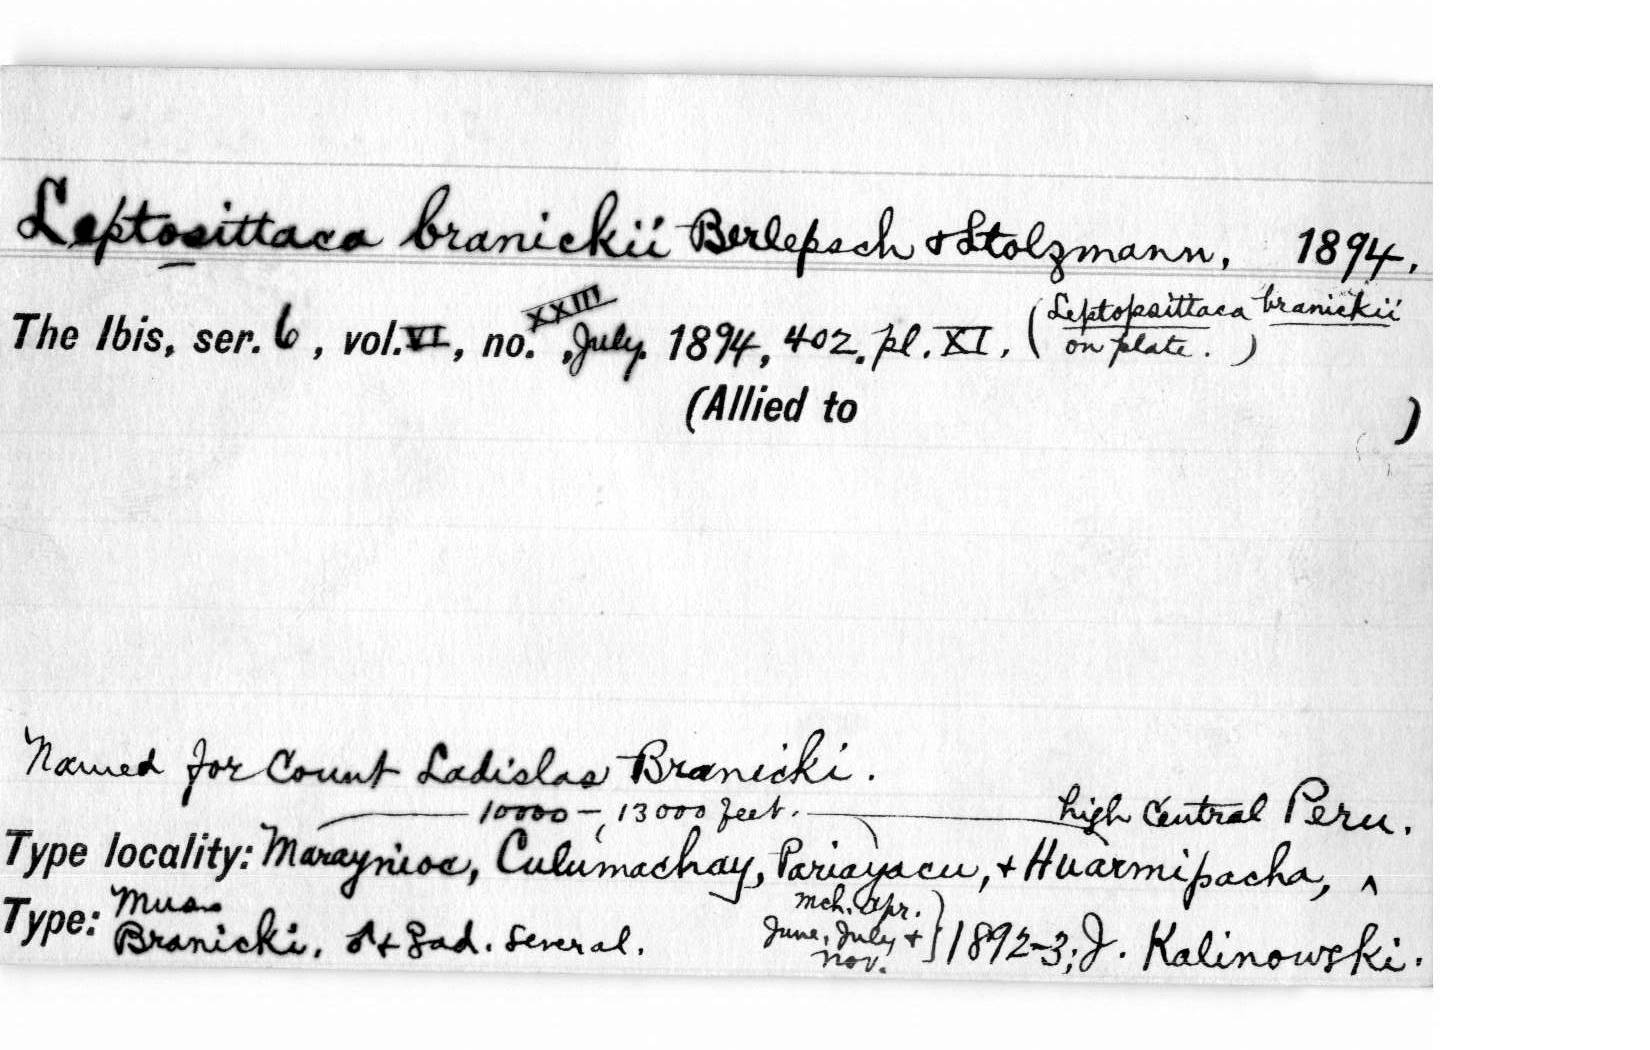 Leptosittaca branickii Berlepsch & Stolzmann, 1894.
The Ibis, ser. 6, vol. VI, no. XXIII, July. 1894, 402. pl. XI. (Leptopsittaca branickii on plate.)
(Allied to )
Named for Count Ladislas Branicki.
10000 – 13000 feet. high central Peru.
Type locality: Maraynioc, Culumachay, Pariayacu, & Huarmipacha, ^
Type: Mus. Branicki, ♂ & ♀ ad. Several. Mch. Apr. June, July & Nov. } 1892-3; J. Kalinowski.